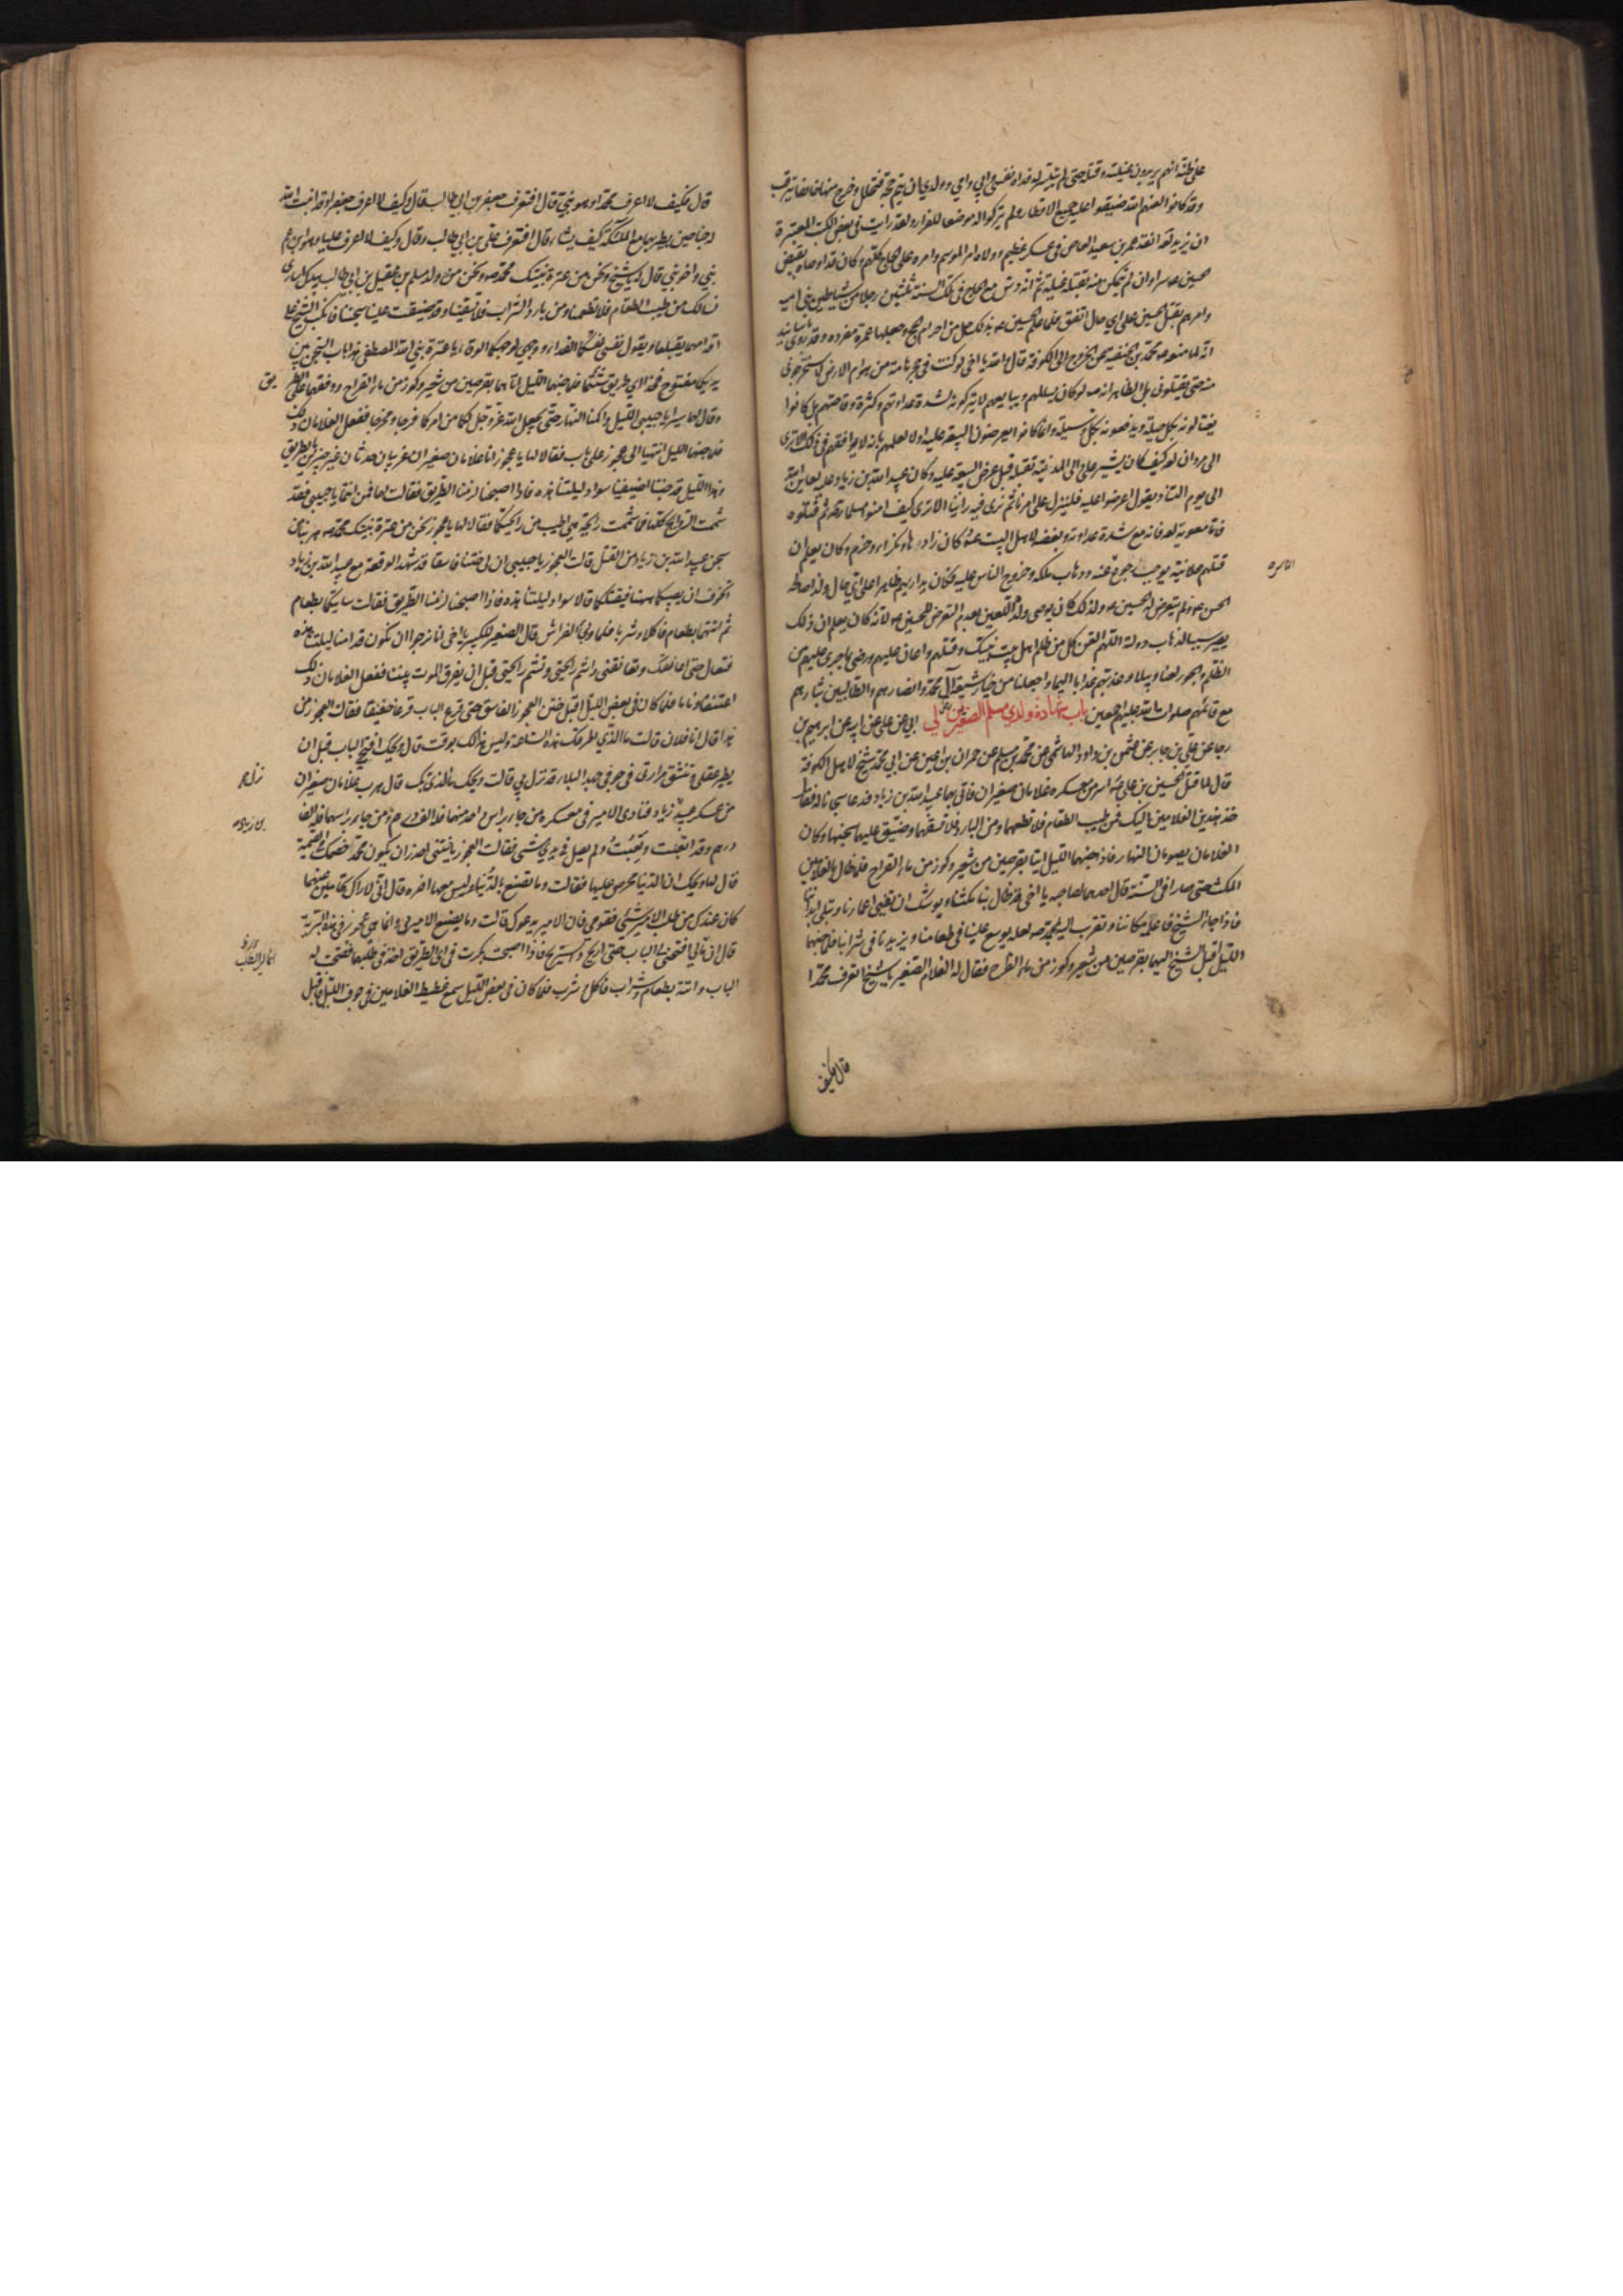 على ظنه انهم يريدون غيلته وقتله حتى لم يتيسر له فداه نفسي وابي وامي وولدي ان يتم حجه فتحلل وخرج منها خائفا يترقب
وقد كانوا لعنهم الله ضيقوا عليه جميع الاقطار ولم يتركوا له موضعا للفرار ولقد رايت في بعض الكتب المعتبرة
ان يزيد لعنه انفذ عمرو بن سعيد العاص في عسكر عظيم وولاه امر الموسم وامره على الحاج كلهم وكان قد اوصاه بقبض
الحسين ع سرا وان لم يتمكن منه بقتله غيلة ثم انه دس مع الحاج في تلك السنة ثلثين رجلا من شياطين بني امية
وامرهم بقتل الحسين على اي حال اتفق فلما علم الحسين ع بذلك حل من احرام الحج وجعلها عمرة مفردة وقد روي باسانيد
انه لما منعه ع محمد بن الحنفية عن الخروج الى الكوفة قال والله يا اخي لو كنت في جحر هامة من هوام الارض لاستخرجوني
منه حتى يقتلوني بل الظاهر انه ص لو كان يسالمهم ويبايعهم لا يتركونه لشدة عداوتهم وكثرة وقاحتهم بل كانوا
يغتالونه بكل حيلة ويدفعونه بكل وسيلة وانما كانوا يعرضون البيعة عليه اولا لعلمهم بانه لا يوافقهم في ذلك الا ترى
الى مروان لعه كيف كان يشير على والي المدينة بقتله قبل عرض البيعة عليه وكان عبيد الله بن زياد عليه لعاين الله
الى يوم التناد يقول اعرضوا عليه فلينزل على امرنا ثم نرى فيه راينا الا ترى كيف امنوا مسلما رضه ثم قتلوه
فاما معوية لعه فانه مع شدة عداوته وبغضه لاهل البيت ع كان ذا دهاء ونكراء وحزم وكان يعلم ان
قتلهم علانية يوجب رجوع الناس عنه وذهاب ملكه وخروج الناس عليه فكان يداريهم ظاهرا على اي حال ولذا صالحه
الحسن ع ولم يتعرض له الحسين ع ولذلك كان يوصي ولده اللعين بعدم التعرض للحسين ع لانه كان يعلم ان ذلك
يصير سببا لذهاب دولته اللهم العن كل من ظلم اهل بيت نبيك وقتلهم واعان عليهم ورضي بما جرى عليهم من
الظلم والجور لعنا وبيلا وعذبهم عذابا اليما واجعلنا من خيار شيعة آل محمد وانصارهم والطالبين بثارهم
مع قائمهم صلوات الله عليهم اجمعين باب شهادة ولدي مسلم الصغيرين رض لي ابي عن علي عن ابيه عن ابرهيم بن
رجا عن علي بن جابر عن عثمن بن داود الهاشمي عن محمد بن مسلم عن حمران بن اعين عن ابي محمد شيخ لاهل الكوفة
قال لما قتل الحسين بن علي ع اسر من معسكره غلامان صغيران فاتي بهما عبيد الله بن زياد فدعا سجانا له فقال
خذ هذين الغلامين اليك فمن طيب الطعام فلا تطعمهما ومن البارد فلا تسقهما وضيق عليهما سجنهما وكان
الغلامان يصومان النهار فاذا جنهما الليل اتيا بقرصين من شعير وكوز من ماء القراح فلما طال بالغلامين
المكث حتى صارا في السنة قال احدهما لصاحبه يا اخي قد طال بنا مكثنا ويوشك ان تفنى اعمارنا وتبلى ابداننا
فاذا جاء الشيخ فاعلمه مكاننا وتقرب اليه بمحمد ص لعله يوسع علينا في طعامنا ويزيدنا في شرابنا فلما جنهما
الليل اقبل الشيخ اليهما بقرصين من شعير وكوز من ماء القراح فقال له الغلام الصغير يا شيخ اتعرف محمدا
قال فكيف
قال فكيف لا اعرف محمدا وهو نبيي قال افتعرف جعفر بن ابي طالب قال وكيف لا اعرف جعفرا وقد انبت الله
له جناحين يطير بهما مع الملئكة كيف يشاء قال افتعرف علي بن ابي طالب وقال وكيف لا اعرف عليا وهو ابن عم
نبيي واخو نبيي قال له يا شيخ ونحن من عترة نبيك محمد ص ونحن من ولد مسلم بن عقيل بن ابي طالب بيدك اسارى
نسالك من طيب الطعام فلا تطعمنا ومن بارد الشراب فلا تسقينا وقد ضيقت علينا سجننا فانكب الشيخ على
اقدامهما يقبلهما ويقول نفسي لنفسكما الفداء ووجهي لوجهكما الوقاء يا عترة نبي الله المصطفى هذا باب السجن بين
يديكما مفتوح فخذا اي طريق شئتما فلما جنهما الليل اتاهما بقرصين من شعير وكوز من ماء القراح ووقفهما على الطريق
وقال لهما سيرا يا حبيبي الليل واكمنا النهار حتى يجعل الله عز وجل لكما من امركما فرجا ومخرجا ففعل الغلامان ذلك
فلما جنهما الليل انتهيا الى عجوز على باب فقالا لها يا عجوز انا غلامان صغيران غريبان حدثان غير خبيرين بالطريق
وهذا الليل قد جننا اضيفينا سواد ليلتنا هذه فاذا اصبحنا لزمنا الطريق فقالت لهما فمن انتما يا حبيبي فقد
شممت الروايح كلها فما شممت رايحة هي اطيب من رايحتكما فقالا لها يا عجوز نحن من عترة نبيك محمد ص هربنا من
سجن عبيد الله بن زياد من القتل قالت العجوز يا حبيبي ان لي ختنا فاسقا قد شهد الوقعة مع عبيد الله بن زياد
اتخوف ان يصيبكما ههنا فيقتلكما قالا سواد ليلتنا هذه فاذا اصبحنا لزمنا الطريق فقالت ساتيكما بطعام
ثم اتتهما بطعام فاكلا وشربا فلما ولجا الفراش قال الصغير للكبير يا اخي انا نرجوا ان نكون قد امنا ليلتنا هذه
فتعال حتى اعانقك وتعانقني واشم رايحتك وتشم رايحتي قبل ان يفرق الموت بيننا ففعل الغلامان ذلك
اعتنقا وناما فلما كان في بعض الليل اقبل ختن العجوز الفاسق حتى قرع الباب قرعا خفيفا فقالت العجوز من
هذا قال انا فلان قالت ما الذي اطرقك هذه الساعة وليس هذا لك بوقت قال ويحك افتحي الباب قبل ان
يطير عقلي وتنشق مرارتي في جوفي جهد البلاء قد نزل بي قالت ويحك ما الذي نزل بك قال هرب غلامان صغيران
من عسكر عبيد الله بن زياد فنادى الامير في معسكره من جاء براس واحد منهما فله الف درهم ومن جاء براسهما فله الفا
درهم وقد اتعبت وتعبت ولم يصل في يدي شي فقالت العجوز يا ختني احذر ان يكون محمد خصمك في القيمة
قال لها ويحك ان الدنيا محرص عليها فقالت وما تصنع بالدنيا وليس معها اخرة قال اني لاراك تحامين عنهما
كان عندك من طلب الامير شيئ فقومي فان الامير يدعوك قالت وما يصنع الامير بي وانما هي عجوز في هذه البرية
قال انما لي الطلب افتحي لي الباب حتى اريح واستريح فاذا اصبحت بكرت في اي الطريق اخذ في طلبهما ففتحت له
الباب واتته بطعام وشراب فاكل وشرب فلما كان في بعض الليل سمع غطيط الغلامين في جوف الليل فاقبل